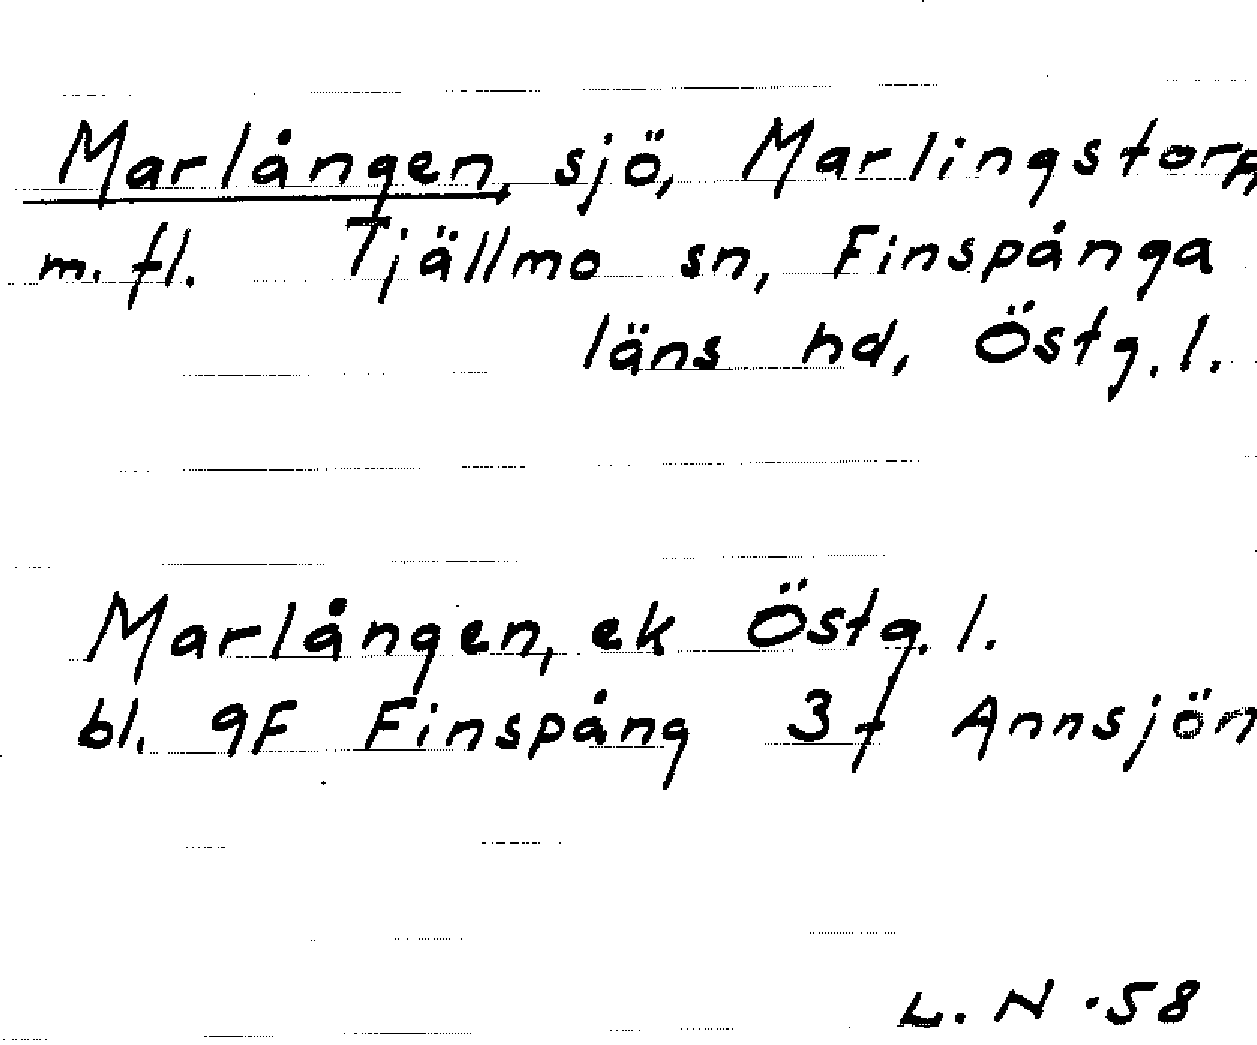 Marlången, sjö, Marlingstorp
m. fl. Tjällmo sn, Finspånga
läns hd, Östg. l.
Marlången, ek Östg. l.
bl. 9F Finspång 3f Annsjön
L. N -58